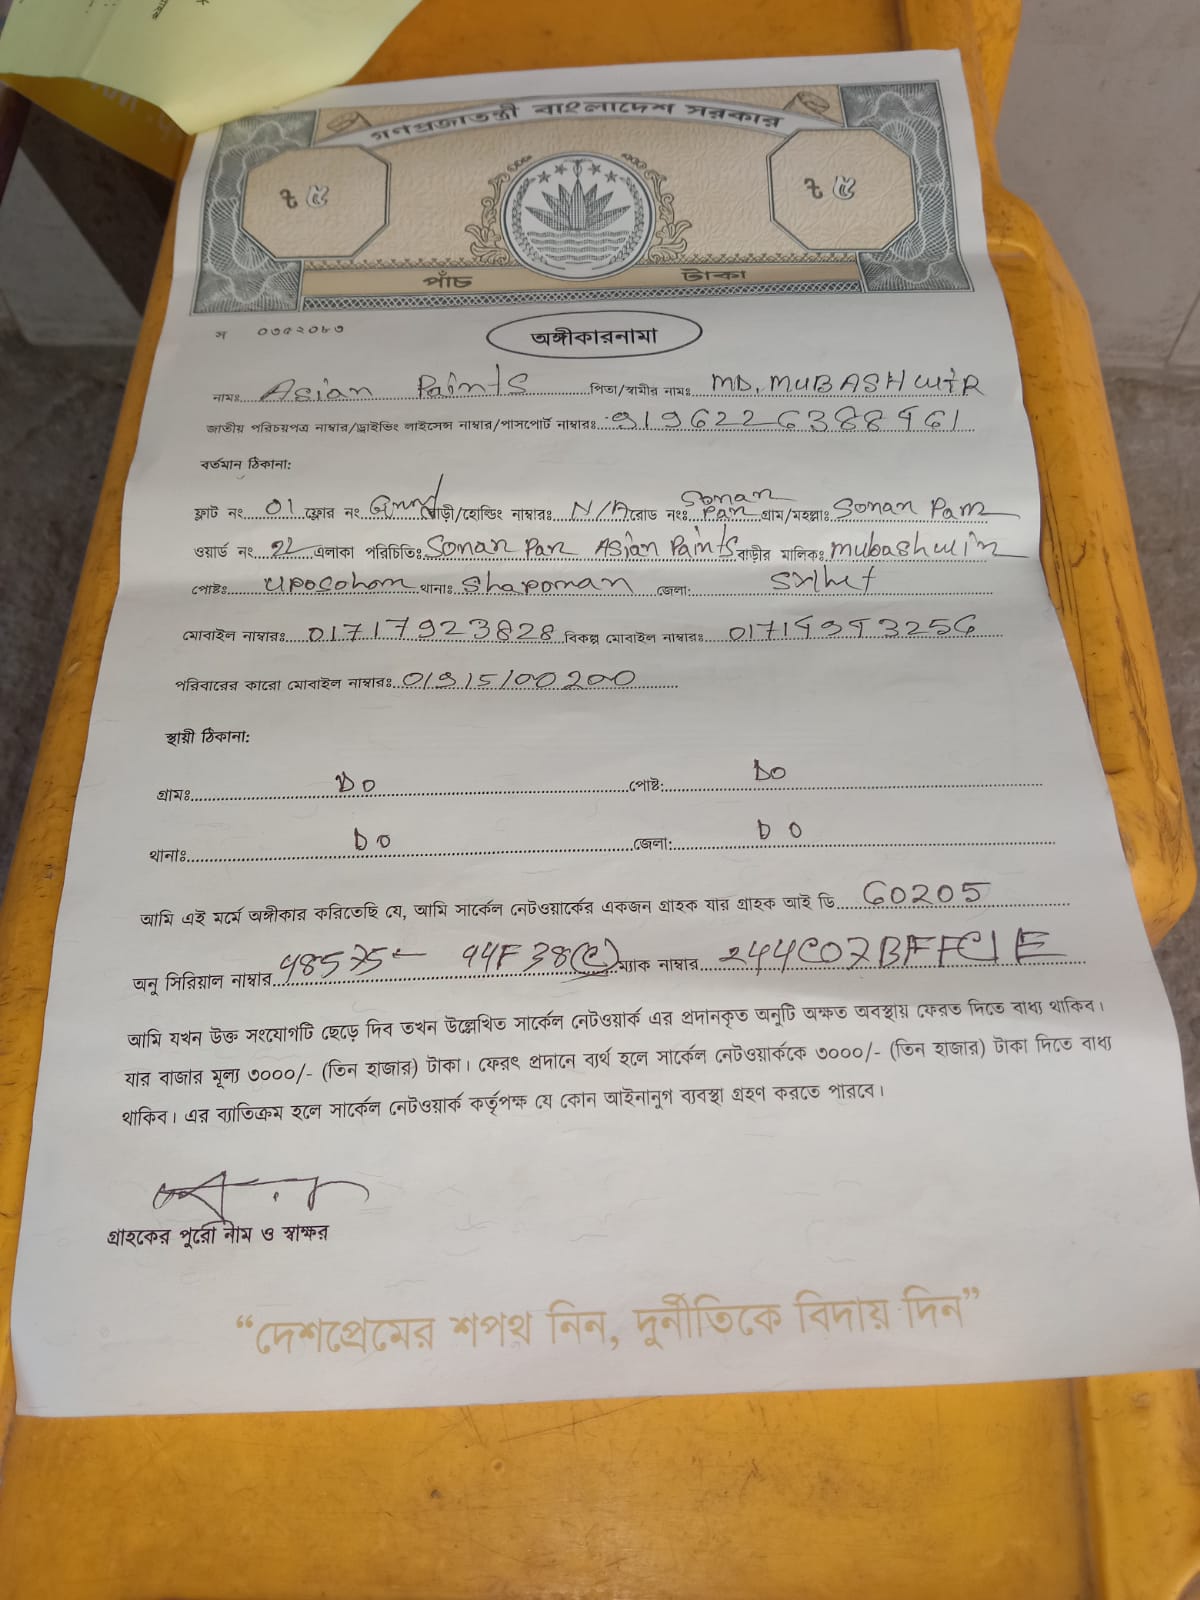 গণপ্রজাতন্ত্রী বাংলাদেশ সরকার
৳ ৫ ৳ ৫
পাঁচ টাকা
স ০৩৫২০৮৩
অঙ্গীকারনামা
নামঃ Asian Paints পিতা/স্বামীর নামঃ MD. MUBASHWIR
জাতীয় পরিচয়পত্র নাম্বার/ড্রাইভিং লাইসেন্স নাম্বার/পাসপোর্ট নাম্বারঃ
বর্তমান ঠিকানা:
ফ্লাট নং 01 ফ্লোর নং বাড়ী/হোল্ডিং নাম্বারঃ N/A রোড নংঃ Sonan Pan গ্রাম/মহল্লাঃ Sonan Pan
ওয়ার্ড নং 22 এলাকা পরিচিতিঃ Sonan Pan Asian Paints বাড়ীর মালিকঃ mubashwin
পোষ্টঃ uposohom থানাঃ Shapoman জেলা: Sylhet
মোবাইল নাম্বারঃ 01717923828 বিকল্প মোবাইল নাম্বারঃ
পরিবারের কারো মোবাইল নাম্বারঃ 01915100200
স্থায়ী ঠিকানা:
গ্রামঃ DO পোষ্ট: DO
থানাঃ DO জেলা: DO
আমি এই মর্মে অঙ্গীকার করিতেছি যে, আমি সার্কেল নেটওয়ার্কের একজন গ্রাহক যার গ্রাহক আই ডি 60205
অনু সিরিয়াল নাম্বার ম্যাক নাম্বার
আমি যখন উক্ত সংযোগটি ছেড়ে দিব তখন উল্লেখিত সার্কেল নেটওয়ার্ক এর প্রদানকৃত অনুটি অক্ষত অবস্থায় ফেরত দিতে বাধ্য থাকিব।
যার বাজার মূল্য ৩০০০/- (তিন হাজার) টাকা। ফেরৎ প্রদানে ব্যর্থ হলে সার্কেল নেটওয়ার্ককে ৩০০০/- (তিন হাজার) টাকা দিতে বাধ্য
থাকিব। এর ব্যাতিক্রম হলে সার্কেল নেটওয়ার্ক কর্তৃপক্ষ যে কোন আইনানুগ ব্যবস্থা গ্রহণ করতে পারবে।
গ্রাহকের পুরো নাম ও স্বাক্ষর
“দেশপ্রেমের শপথ নিন, দুর্নীতিকে বিদায় দিন”